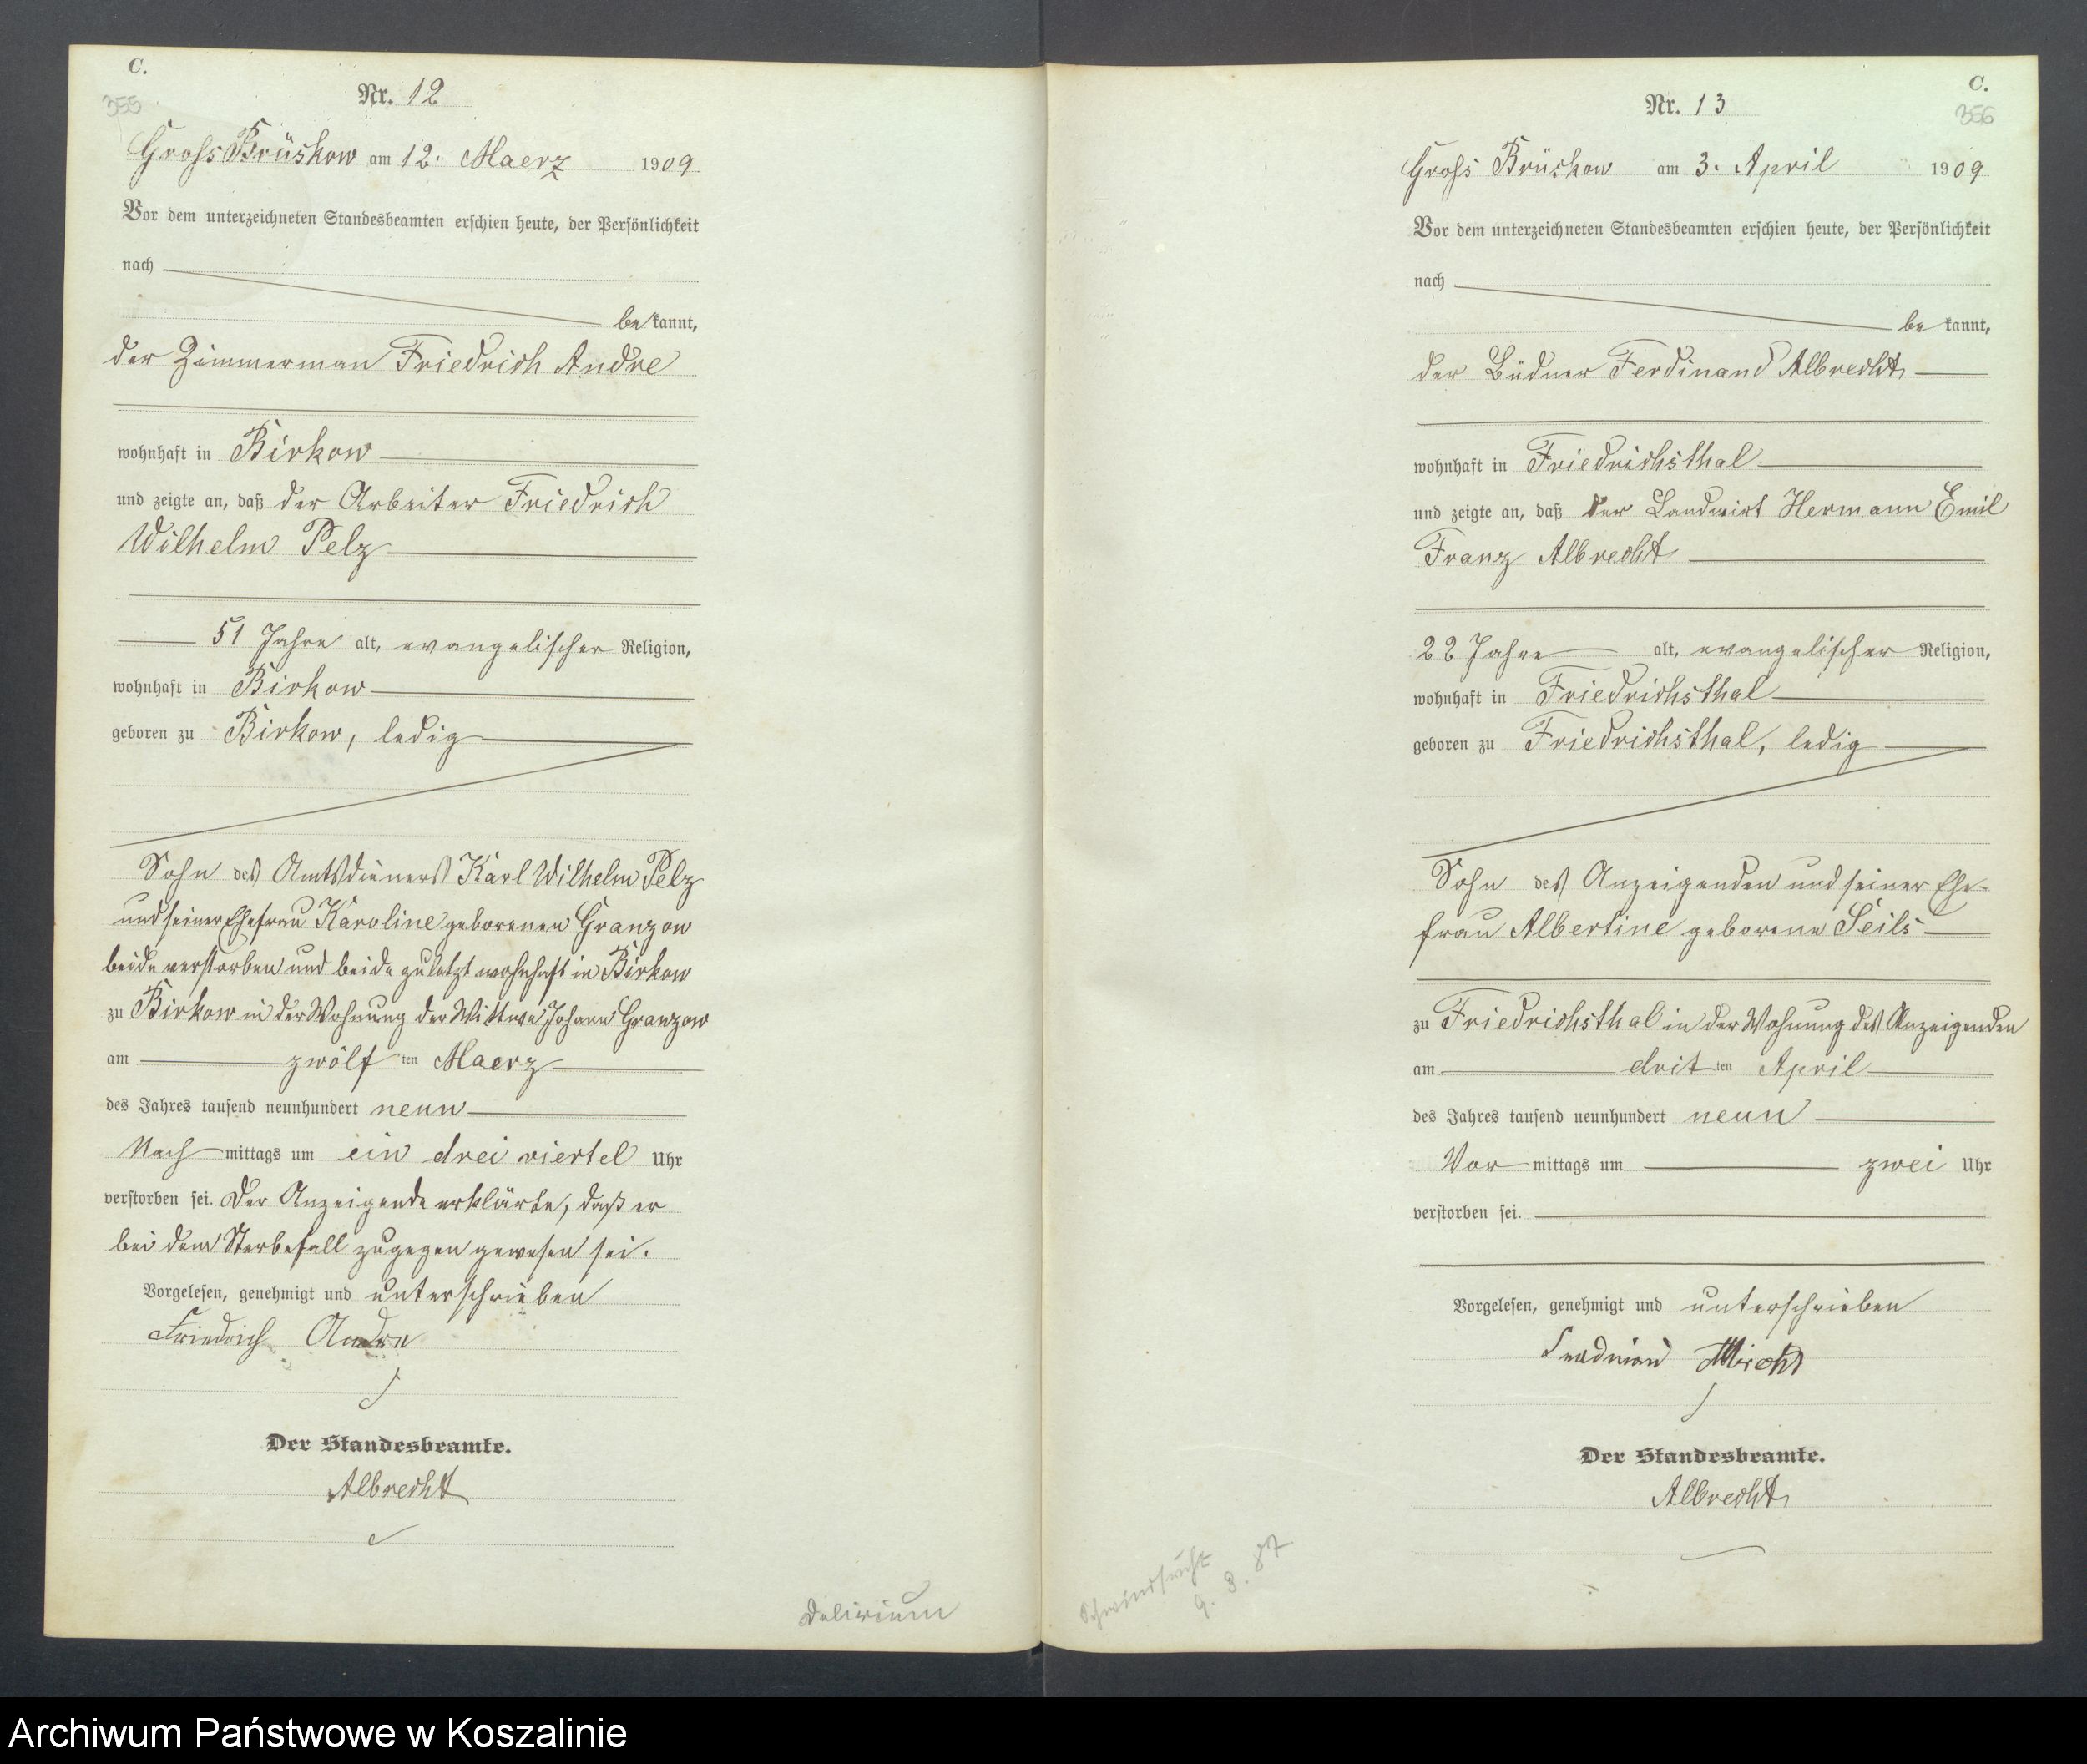 C.
355
Nr. 12
Gross Brüskow am 12. Maerz 1909
Vor dem unterzeichneten Standesbeamten erschien heute, der Persönlichkeit
nach
be kannt,
der Zimmerman Friedrich Andre
wohnhaft in Birkow
und zeigte an, daß der Arbeiter Friedrich
Wilhelm Pelz
51 Jahre alt, evangelischer Religion,
wohnhaft in Birkow
geboren zu Birkow, ledig
Sohn des Amtsdieners Karl Wilhelm Pelz
und seiner Ehefrau Karoline geborenen Granzow
beide verstorben und beide zuletzt wohnhaft in Birkow
zu Birkow in der Wohnung der Wittwe Johann Granzow
am zwölf ten Maerz
des Jahres tausend neunhundert neun
Nach mittags um ein drei viertel Uhr
verstorben sei. Der Anzeigende erklärte, daß er
bei dem Sterbefall zugegen gewesen sei.
Vorgelesen, genehmigt und unterschrieben
Friedrich Andre
Der Standesbeamte.
Albrecht
Delirium
C.
356
Nr. 13
Gross Brüskow am 3. April 1909
Vor dem unterzeichneten Standesbeamten erschien heute, der Persönlichkeit
nach
be kannt,
der Büdner Ferdinand Albrecht
wohnhaft in Friedrichsthal
und zeigte an, daß der Landwirt Hermann Emil
Franz Albrecht
22 Jahre alt, evangelischer Religion,
wohnhaft in Friedrichsthal
geboren zu Friedrichsthal, ledig
Sohn des Anzeigenden und seiner Ehe-
frau Albertine geborene Seils
zu Friedrichsthal in der Wohnung des Anzeigenden
am drit ten April
des Jahres tausend neunhundert neun
Vor mittags um zwei Uhr
verstorben sei.
Vorgelesen, genehmigt und unterschrieben
Ferdinand Albrecht
Der Standesbeamte.
Albrecht
Schwindsucht
9. 3. 87
Archiwum Państwowe w Koszalinie